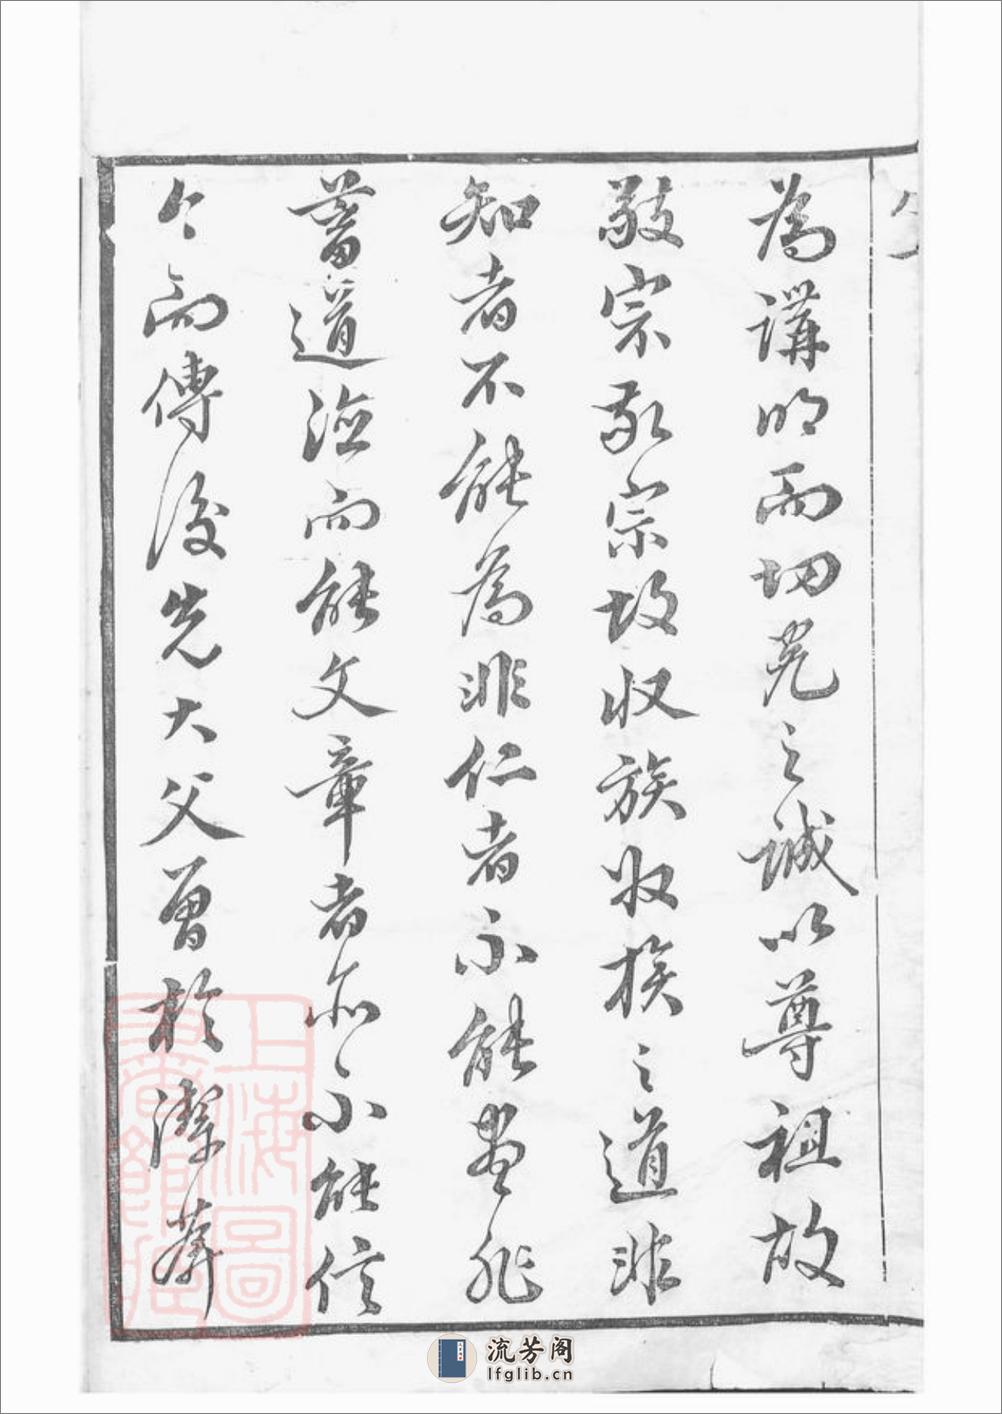 為講明而切究之誠以尊祖故
敬宗敬宗故收族收族之道非
知者不能為非仁者不能盡非
蓄道德而能文章者亦不能信
今而傳後先大父曾於潔葊
上海圖書館藏
流芳阁
lfglib.cn